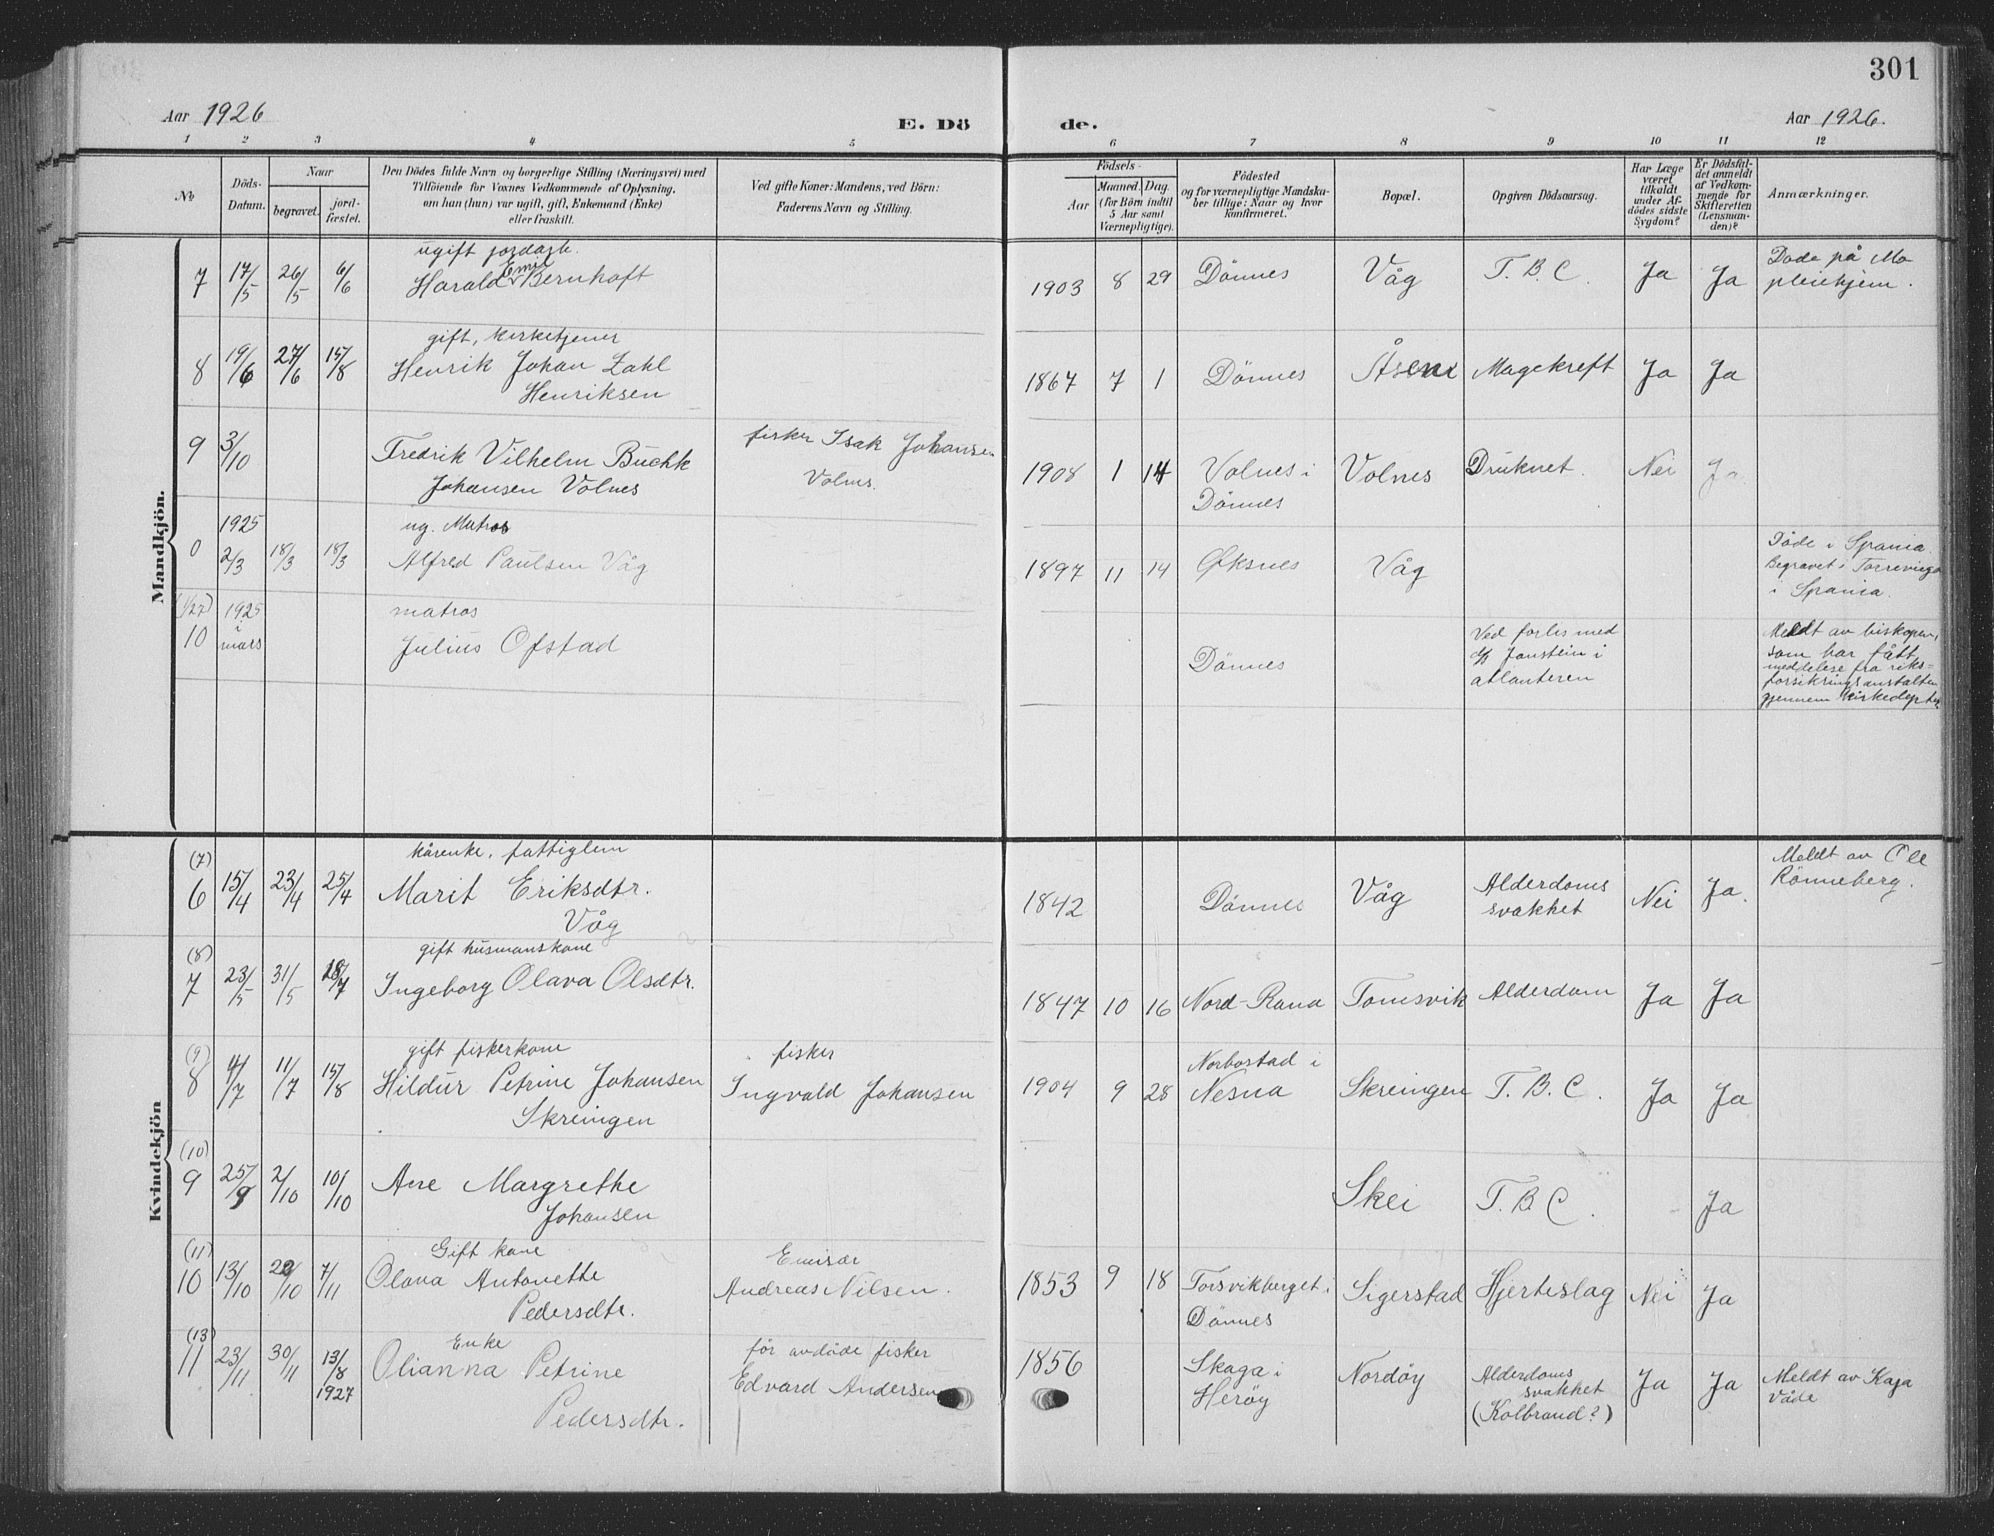 301
Aar 1926
E. Dö de.
Aar 1926.
1 2 3 4 5 6 7 8 9 10 11 12
No
Döds-Datum.
Naar
begravet.
jord-fæstet.
Den Dödes fulde Navn og borgerlige Stilling (Næringsvei) med
Tilföiende for Voxnes Vedkommende af Oplysning,
om han (hun) var ugift, gift, Enkemand (Enke)
eller fraskilt.
Ved gifte Koner: Mandens, ved Börn:
Faderens Navn og Stilling.
Födsels-
Aar
Maaned. Dag.
(for Börn indtil
5 Aar samt
Værnepligtige).
Födested
og for værnepligtige Mandska-
ber tillige: Naar og hvor
konfirmeret.
Bopæl.
Opgiven Dödsaarsag.
Har Læge
været
tilkaldt
under Af-
dödes sidste
Sygdom?
Er Dödsfal-
det anmeldt
af Vedkom-
mende for
Skifteretten
(Lensman-
den)?
Anmærkninger.
Mandkjön.
ugift jordarb.
7 17/5 26/5 6/6 Harald Emil Bernhoft 1903 8 29 Dönnes Våg T.B.C. Ja Ja Döde på Mo
pleiehjem.
gift, kirketjener
8 19/6 27/6 15/8 Henrik Johan Zahl 1867 7 1 Dönnes Åsen Magekreft Ja Ja
Henriksen
9 3/10 Fredrik Vilhelm Buchk fisker Isak Johansen 1908 1 14 Volnes i Volnes Druknet. Nei Ja
Johansen Volnes Volnes. Dönnes
1925 ug. Matros
0 2/3 18/3 18/3 Alfred Paulsen Våg 1897 11 14 Øksnes Våg Döde i Spania.
Begravet i Torrevieja
i Spania.
(1/27) 1925 matros
10 i mars Julius Ofstad Dönnes Ved forlis med
d/s Janstein i
atlanteren
Meldt av biskopen,
som har fått
meddelese fra riks-
forsikringsanstalten
gjennem kirkedept
Kvindekjön
(7) kårenke, fattiglem
6 15/4 23/4 25/4 Marit Eriksdtr. 1842 Dönnes Våg Alderdoms Nei Ja. Meldt av Ole
Våg svakhet Rönneberg.
(8) gift husmanskone
7 23/5 31/5 18/7 Ingeborg Olava Olsdtr. 1847 10 16 Nord-Rana Tomsvik Alderdom Ja Ja
(9) gift fiskerkone fisker Norbostad i
8 4/7 11/7 15/8 Hildur Petrine Johansen Ingvald Johansen 1904 9 28 Nesna Skreingen T.B.C. Ja Ja
Skreingen
(10)
9 25/9 2/10 10/10 Ane Margrethe Skei T.B.C. Ja
Johansen
(11) Gift kone Emisær
10 13/10 22/10 7/11 Olava Antonette Andreas Nilsen. 1853 9 18 Torsvikberget i Sigerstad Hjerteslag Nei Ja
Pedersdtr. Dönnes
(13) Enke för avdöde fisker
11 23/11 30/11 13/8 1927 Olianna Petrine Edvard Andersen 1856 Skaga i Nordöy Alderdoms Ja Ja Meldt av Kaja
Pedersdtr. Heröy svakhet Våde
(Kolbrand?)